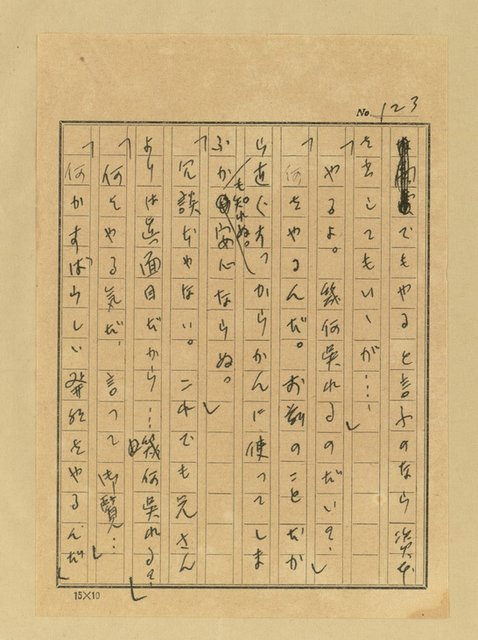 No. 123
でもやると言ふのなら資本
を出してもいゝが…」
「やるよ。幾何呉れるのだい?」
「何をやるんだ。お前のことだか
ら直ぐすつからかんに使つてしま
ふかも知れぬ。安心ならぬ。」
「冗談ぢやない。これでも兄さん
よりは真面目だから…幾何呉れる?」
「何をやる気だ、言つて御覧…」
「何かすばらしい発明をやるんだ」
15×10